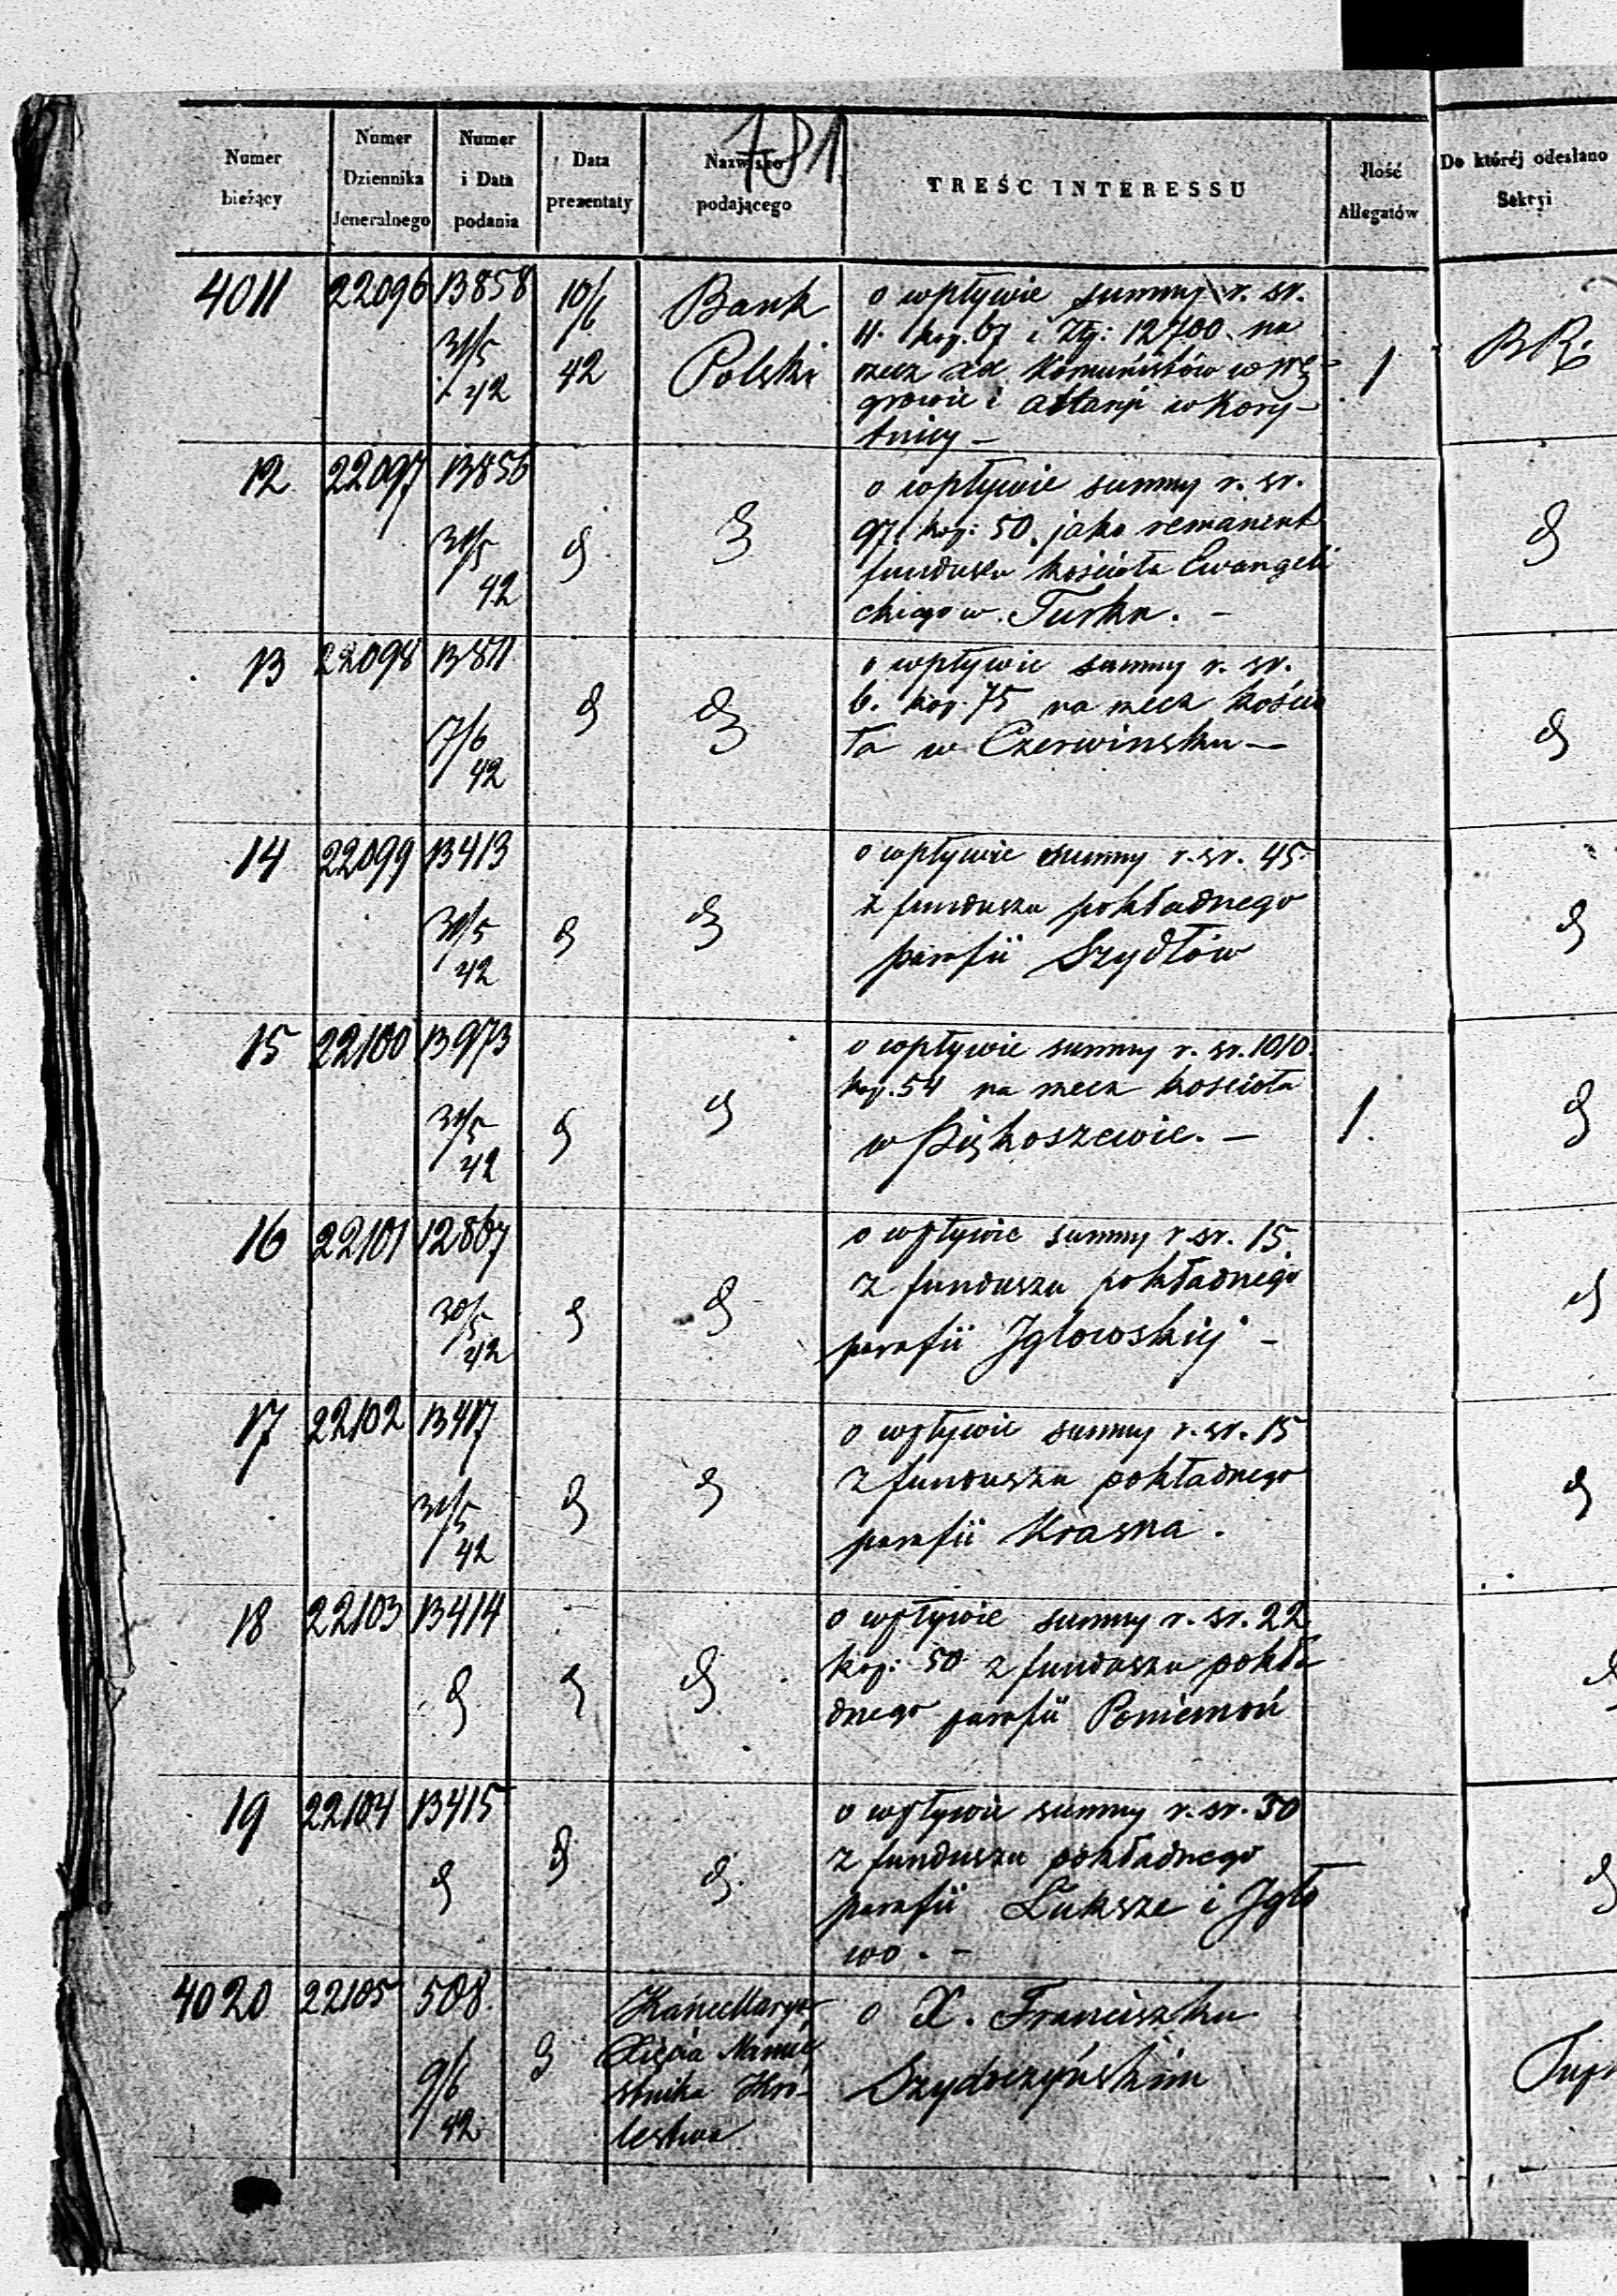 181
Numer bieżący
Numer Dziennika Jeneralnego
Numer i Data podania
Data prezentaty
Nazwisko podającego
TREŚĆ INTERESSU
Ilość Allegatów
Do któréj odesłano Sekcyi
4011 22096 13858 31/5 42 10/6 42 Bank Polski
o wpływie summy r. sr.
11. kop. 67 i Złp: 12700 na
rzecz xx Komunistów w Wę-
growie i altaryi w Kory-
tnicy –
1
12 22097 13856 31/5 42 d d
o wpływie summy r. sr.
97 kop: 50. jako remanent
funduszu kościoła Ewangeli
ckiego w Turku. –
d
13 22098 13811 7/6 42 d d
o wpływie summy r. sr.
6. kop. 75 na rzecz kościo
ła w Czerwinsku –
d
14 22099 13413 31/5 42 d d
o wpływie summy r. sr. 45
z funduszu pokładnego
parafii Szydłów
d
15 22100 13973 31/5 42 d d
o wpływie summy r. sr. 1010
kop. 54 na rzecz kościoła
w Piękoszewie. –
1. d
16 22101 12867 30/5 42 d d
o wpływie summy r. sr. 15
z funduszu pokładnego
parafii Jgłowskiej –
d
17 22102 13417 31/5 42 d d
o wpływie summy r. sr. 15
z funduszu pokładnego
parafii Krasna.
d
18 22103 13414 d d d
o wpływie summy r. sr. 22
kop: 50 z funduszu pokła
dnego parafii Poniemoń
19 22104 13415 d d d
o wpływie summy r. sr. 30
z funduszu pokładnego
parafii Łuksze i Jgło
wo. –
d
4020 22105 508 9/6 42 d
Kancellarya
Xięcia Namie
stnika Kró-
lestwa
o X. Franciszku